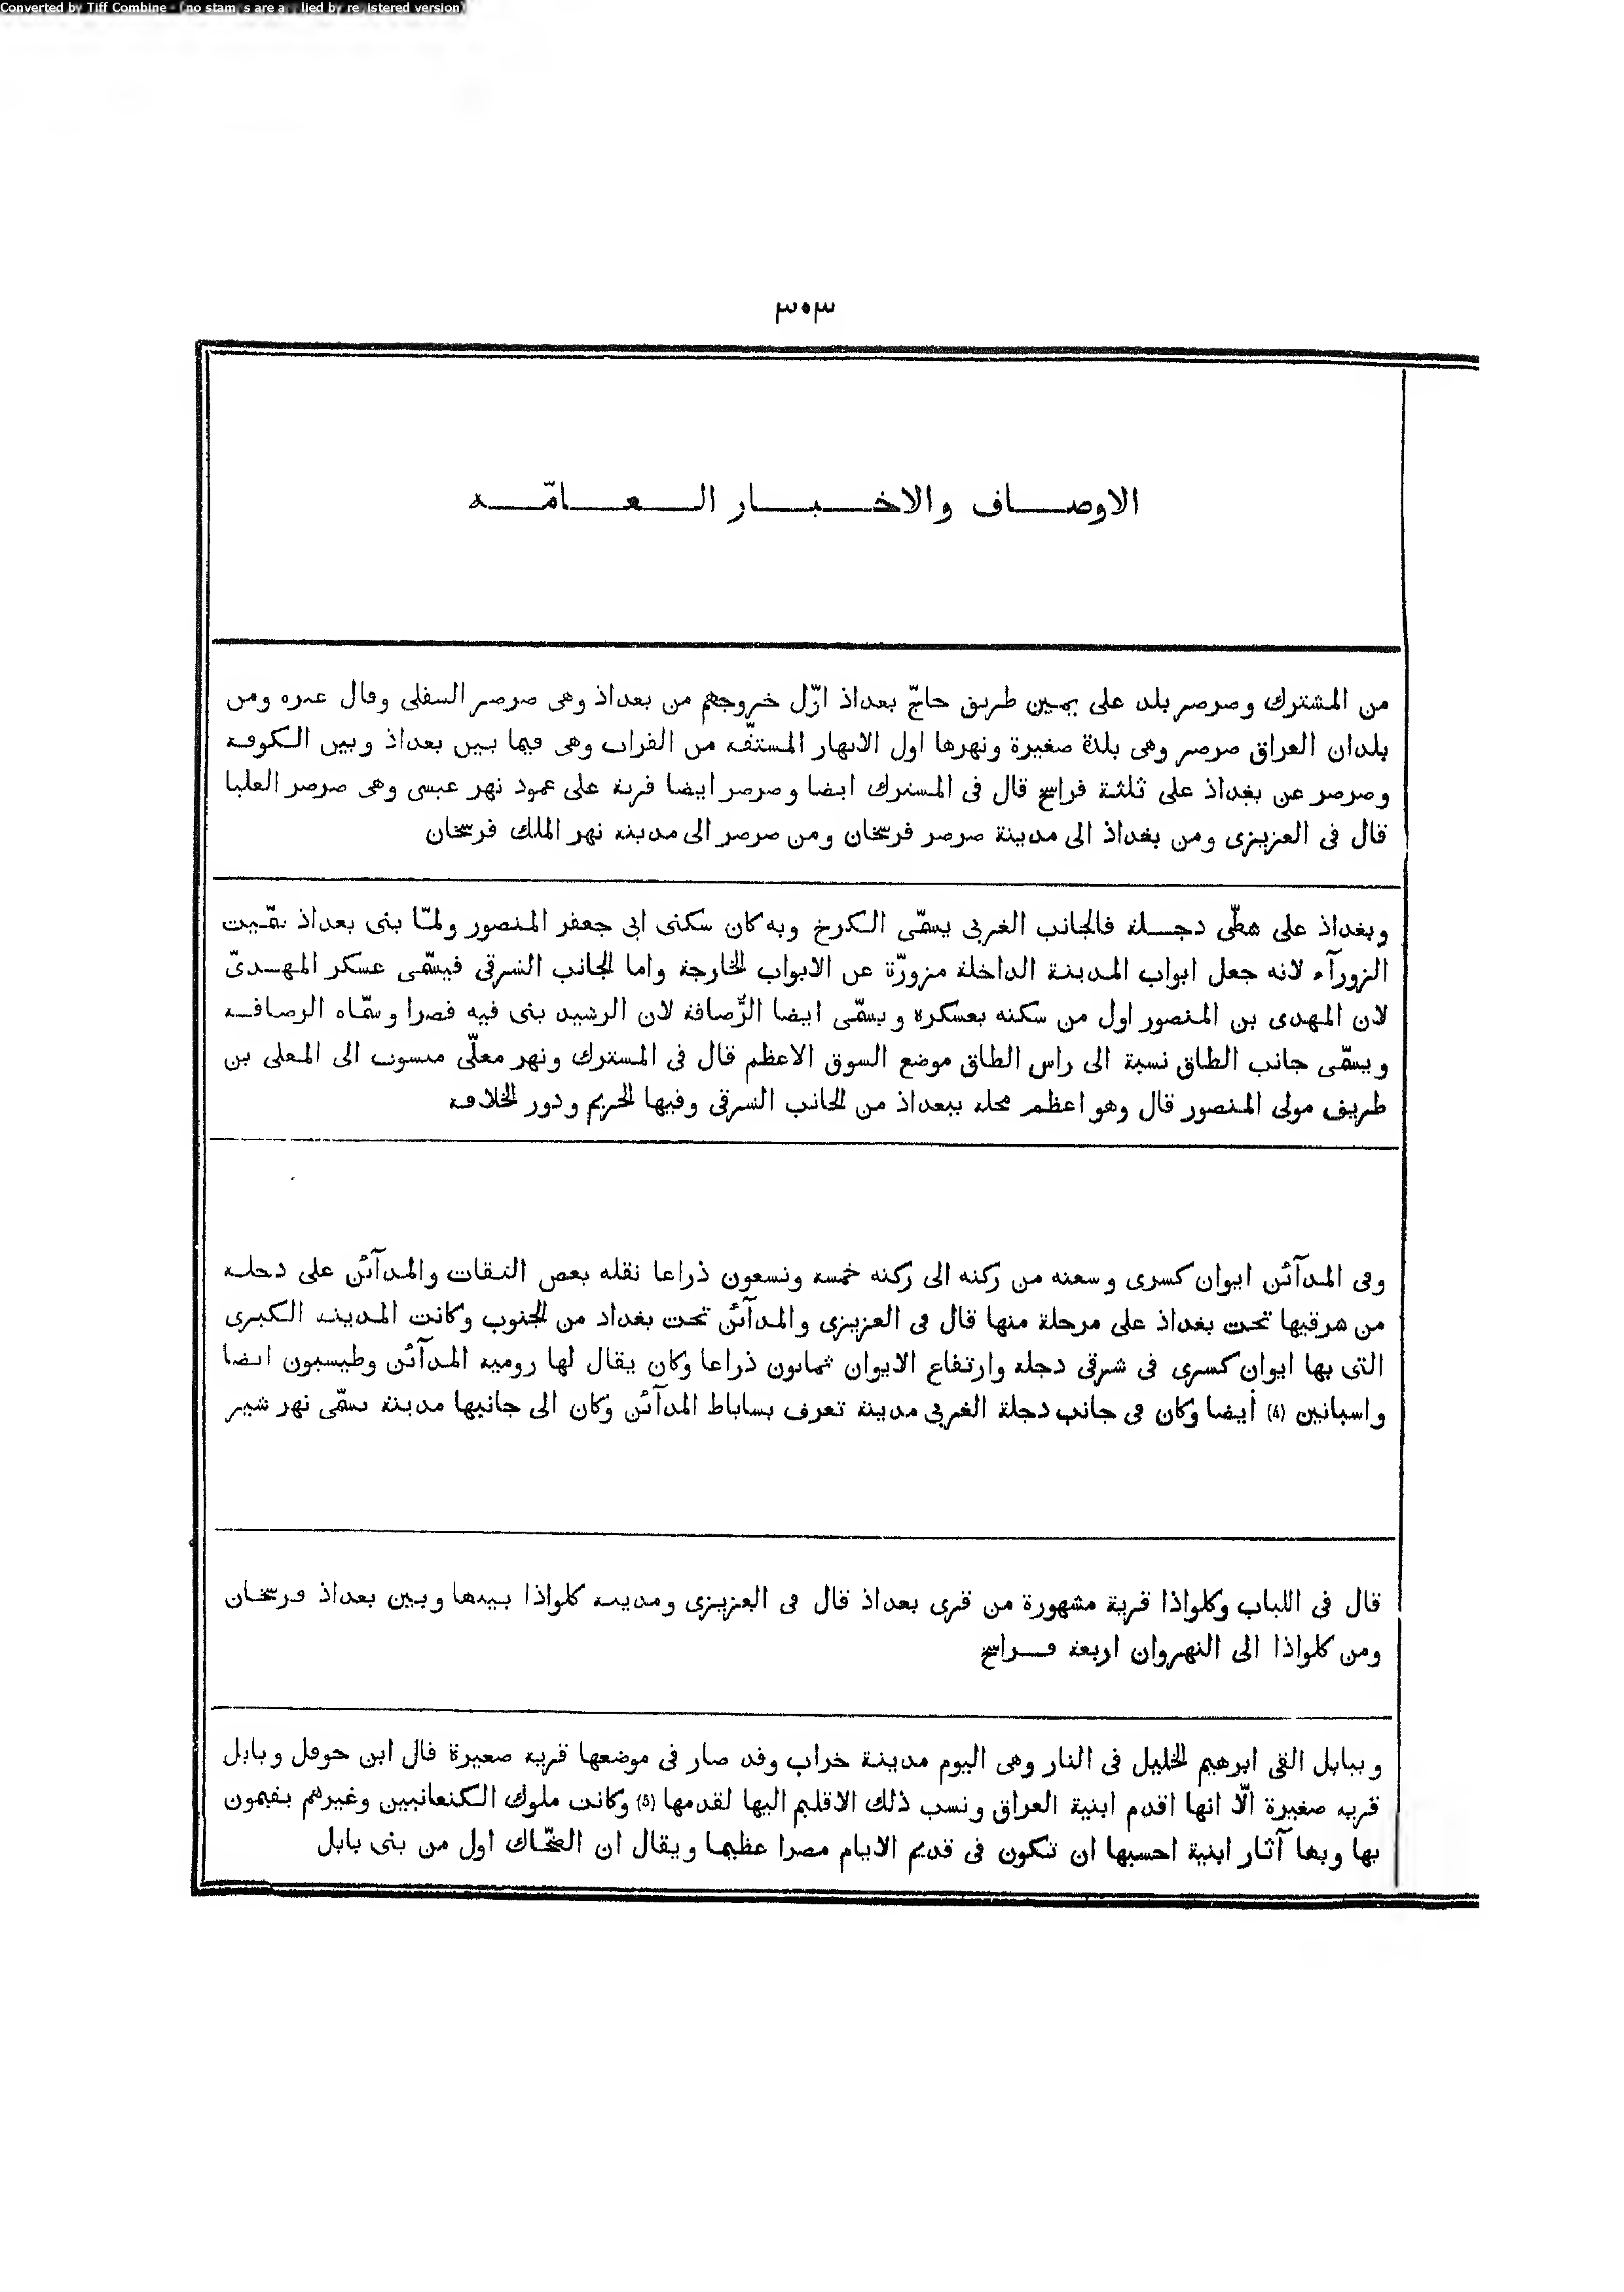 Converted by Tiff Combine - (no stamps are applied by registered version)
٣٠٣
الاوصاف والاخبار العامّة
من المشترك وصرصر بلد على يمين طريق حاجّ بغداذ اوّل خروجهم من بغداذ وهى صرصر السفلى وقال غيره ومن
بلدان العراق صرصر وهى بلدة صغيرة ونهرها اول الانهار المستقّة من الفرات وهى فيما بين بغداذ وبين الكوفة
وصرصر عن بغداذ على ثلثة فراسخ قال فى المشترك ايضا وصرصر ايضا قرية على عمود نهر عيسى وهى صرصر العليا
قال فى العزيزى ومن بغداذ الى مدينة صرصر فرسخان ومن صرصر الى مدينة نهر الملك فرسخان
وبغداذ على شطّى دجلة فالجانب الغربى يسمّى الكرخ وبه كان سكنى ابى جعفر المنصور ولمّا بنى بغداذ سمّيت
الزورآء لانه جعل ابواب المدينة الداخلة مزورّة عن الابواب الخارجة واما الجانب الشرقى فيسمّى عسكر المهدىّ
لان المهدى بن المنصور اول من سكنه بعسكره ويسمّى ايضا الرُّصافة لان الرشيد بنى فيه قصرا وسمّاه الرصافة
ويسمّى جانب الطاق نسبة الى راس الطاق موضع السوق الاعظم قال فى المشترك ونهر معلّى منسوب الى المعلى بن
طريف مولى المنصور قال وهو اعظم محلة ببغداذ من الجانب الشرقى وفيها الحريم ودور الخلافة
وفى المدآئن ايوان كسرى وسعته من ركنه الى ركنه خمسة وتسعون ذراعا نقله بعض الثقات والمدآئن على دجلة
من شرقيها تحت بغداذ على مرحلة منها قال فى العزيزى والمدآئن تحت بغداد من الجنوب وكانت المدينة الكبرى
التى بها ايوان كسرى فى شرقى دجلة وارتفاع الايوان ثمانون ذراعا وكان يقال لها رومية المدآئن وطيسبون ايضا
واسبانين (4) أيضا وكان فى جانب دجلة الغربى مدينة تعرف بساباط المدآئن وكان الى جانبها مدينة تسمّى نهر شير
قال فى اللباب وكلواذا قرية مشهورة من قرى بغداذ قال فى العزيزى ومدينة كلواذا بينها وبين بغداذ فرسخان
ومن كلواذا الى النهروان اربعة فراسخ
وببابل القى ابرهيم الخليل فى النار وهى اليوم مدينة خراب وقد صار فى موضعها قرية صغيرة قال ابن حوقل وبابل
قرية صغيرة الّا انها اقدم ابنية العراق ونسب ذلك الاقليم اليها لقدمها (5) وكانت ملوك الكنعانيين وغيرهم يقيمون
بها وبها آثار ابنية احسبها ان تكون فى قديم الايام مصرا عظيما ويقال ان الضحّاك اول من بنى بابل